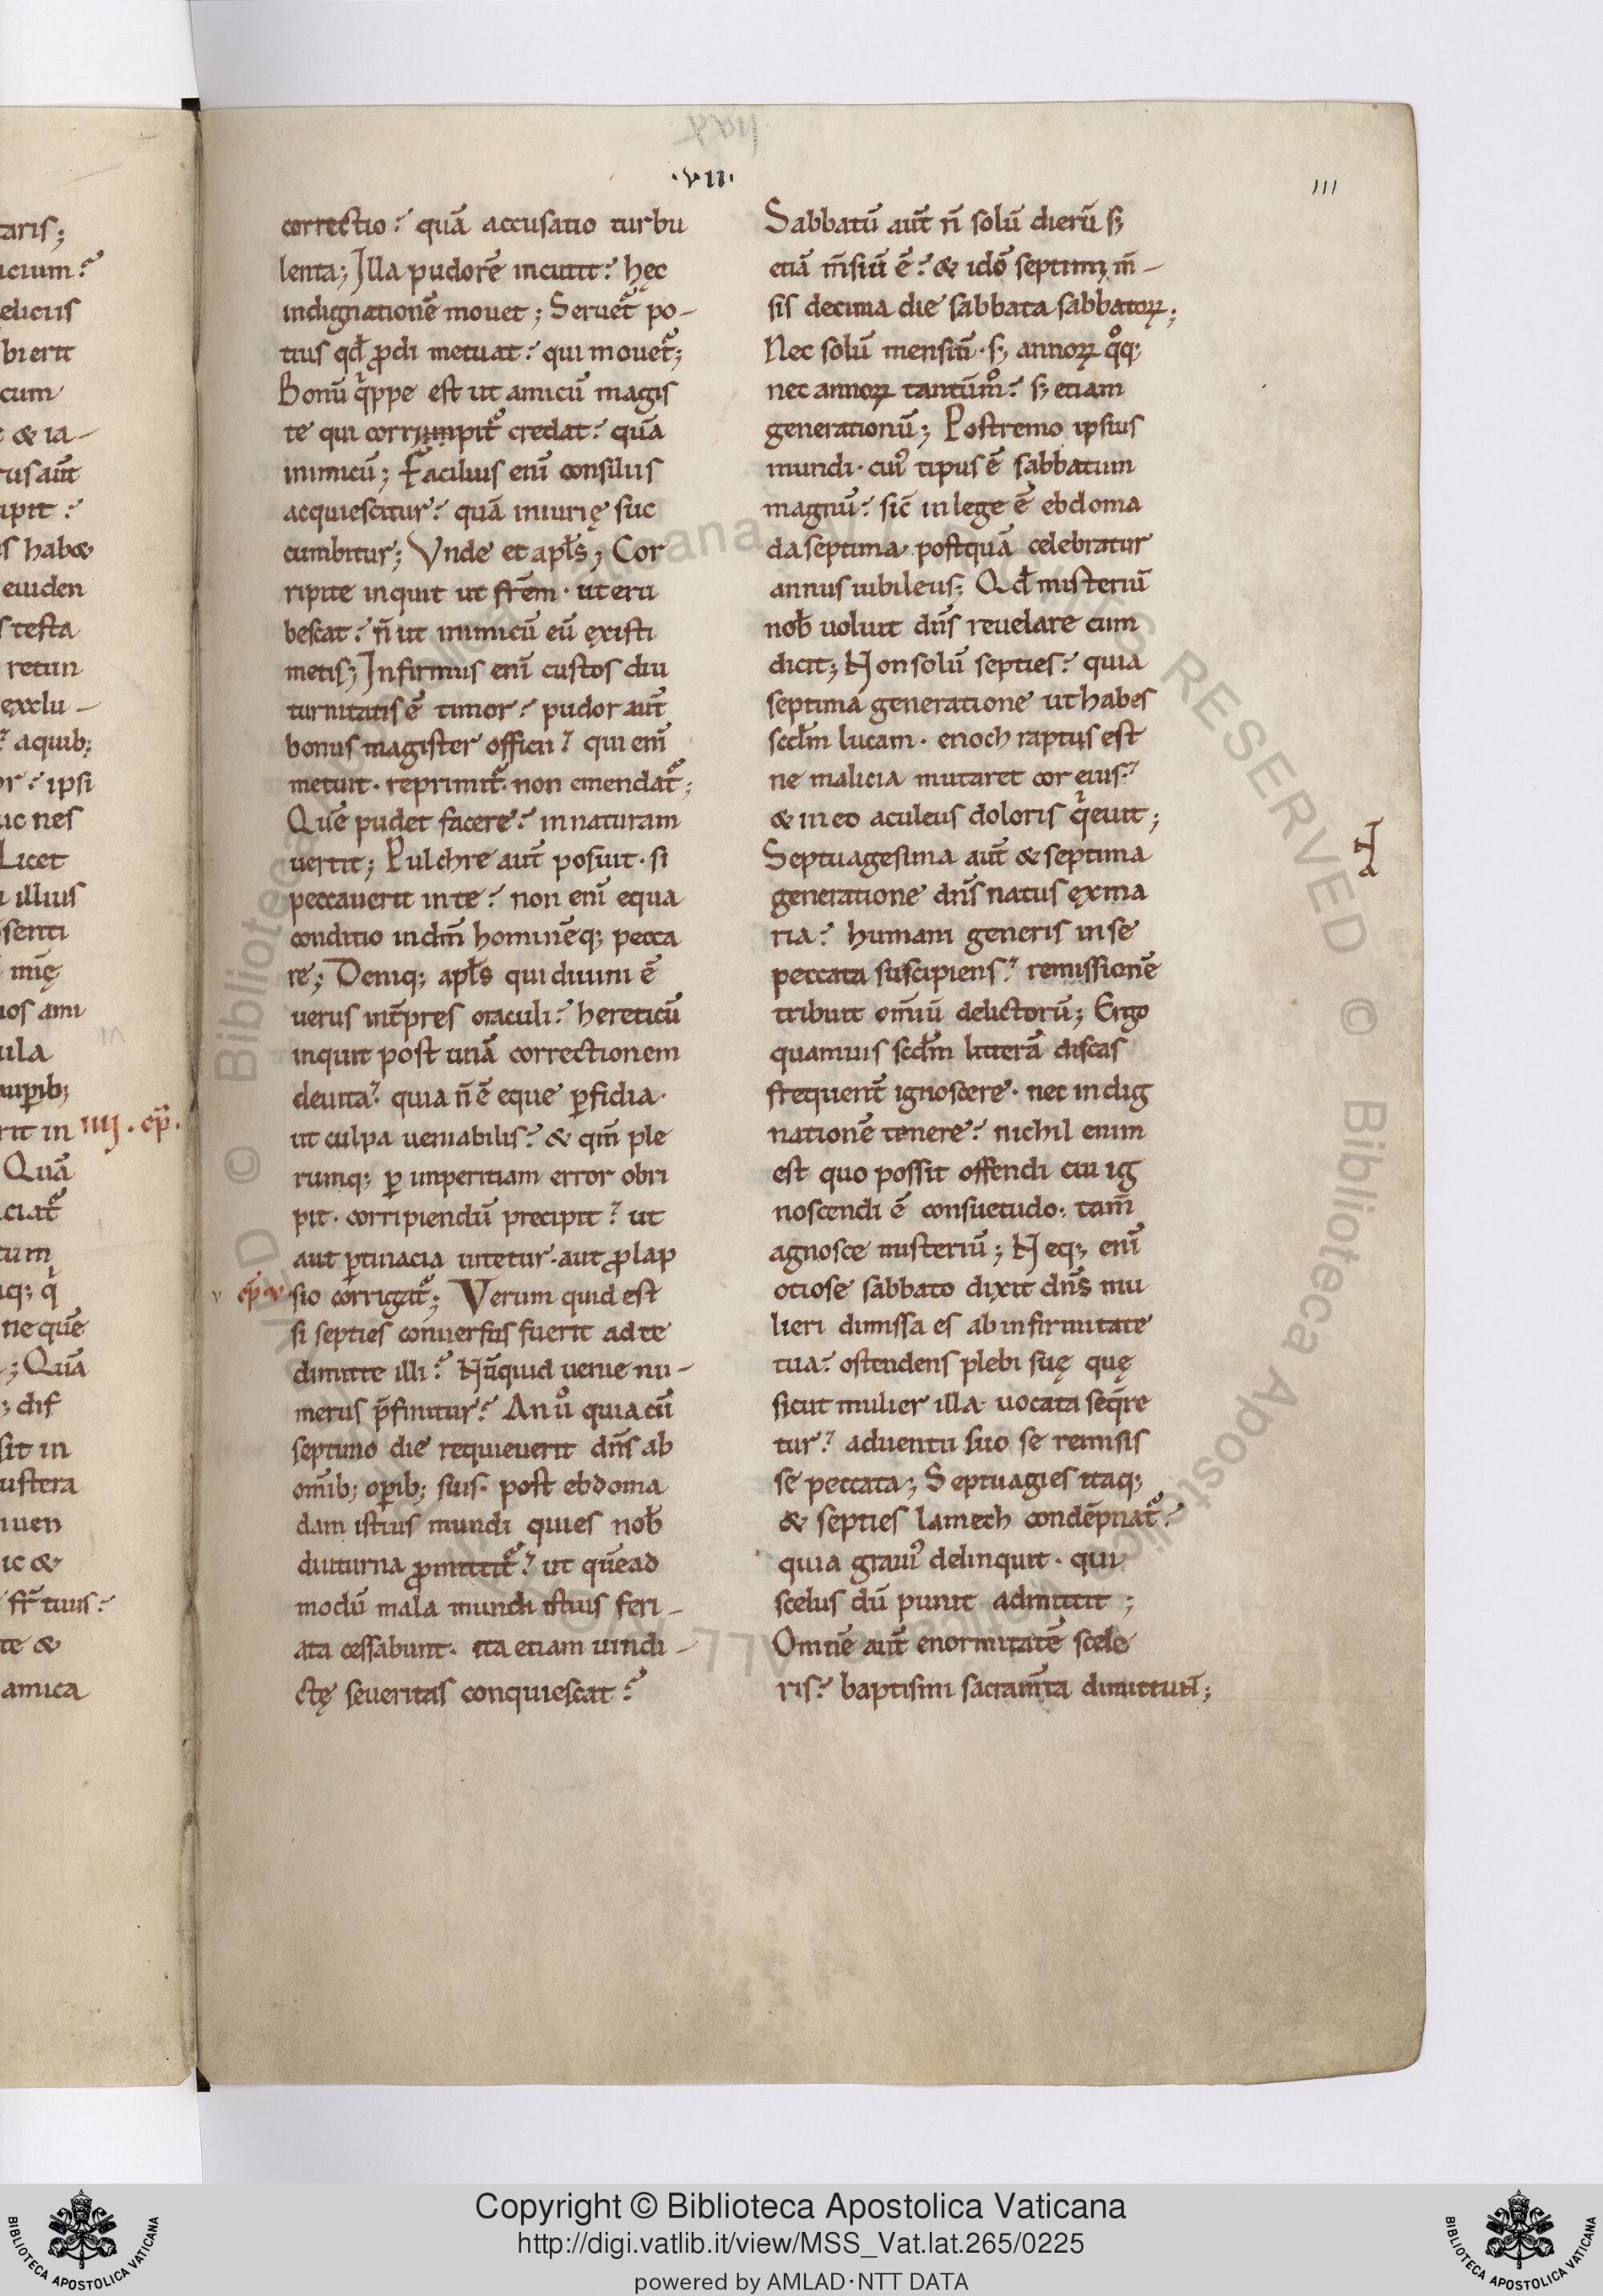 ·VII·
111
correctio? quā accusatio turbu
lenta; Illa pudorē incutit? hęc
indignationē mouet; Seruet᷑ po-
tius qđ ꝓdi metuat? qui mouet᷑;
Bonū qͥppe est ut amicū magis
te qui corrumpit᷑ credat? quā
inimicū; Facilius eni̅ consiliis
acquiescitur? quā iniurię suc
cumbitur; Vnde et apl̅s; Cor
ripite inquit ut fr̅em· ut eru
bescat? n̅ ut inimicū eū ęxisti
metis; Infirmus eni̅ custos diu
turnitatis ē timor? pudor aut̅
bonus magister officii? qui eni̅
metuit· reprimit᷑· non emendat᷑;
Quē pudet facere? in naturam
uertit; Pulchre aut̅ posuit· si
peccauerit in te? non eni̅ equa
conditio in dm̅ hominēq; pecca
re; Deniq; apl̅s qui diuini ē
uerus int̅pres oraculi? hereticū
inquit post unā correctionem
deuita? quia n̅ ē eque ꝑfidia·
ut culpa ueniabilis? & qm̅ ple
rumq; ꝑ imperitiam error obri
pit· corripiendū precipit? ut
aut ꝑtinacia uitetur· aut ꝓlap
v cp̅ v sio corrigat᷑; Verum quid est
si septies conuersus fuerit ad te
dimitte illi? Nūquid uenie nu-
merus p̅finitur? An uͦ quia cū
septimo die requieuerit dn̅s ab
om̅ib; oꝑib; suis· post ebdoma
dam istius mundi quies nob̅
diuturna ꝓmittit᷑? ut quēad
modū mala mundi istius feri-
ata cessabunt· ita etiam uindi-
ctę seueritas conquiescat?
Sabbatū aut̅ n̅ solū dierū s;
etiā m̅siū ē? & ideo̅ septimi m̅-
sis decima die sabbata sabbatoꝝ;
Nec solū mensiū· s; annoꝝ qͦq;
nec annoꝝ tantūmͦ? s; etiam
generationū; Postremo ipsius
mundi· cuiꝰ tipus ē sabbatum
magnū? sic̅ in lege ē ebdoma
da septima· postquā celebratur
annus iubileus; Qđ misteriū
nob̅ uoluit dn̅s reuelare cum
dicit; Non solū septies? quia
septima generatione ut habes
scđm lucam· enoch raptus est
ne malicia mutaret cor eius?
& in eo aculeus doloris qͥeuit;
Septuagesima aut̅ & septima
generatione dn̅s natus ęx ma
ria? humani generis in se
peccata suscipiens? remissionē
tribuit om̅iū delictorū; Ergo
quamuis scđm litterā discas
frequent̅ ignoscere· nec indig
nationē tenere? nichil enim
est quo possit offendi cui ig
noscendi ē consuetudo· tam̅
agnosce misteriū; Neq; eni̅
otiose sabbato dixit dn̅s mu
lieri dimissa es ab infirmitate
tua? ostendens plebi suę quę
sicut mulier illa· uocata seq̅re
tur? aduentu suo se remisis
se peccata; Septuagies itaq;
& septies lamech condēpnat᷑?
quia grauiꝰ delinquit· qui
scelus dū punit admittit;
Omnē aut̅ enormitatē scele
ris? baptismi sacram̅ta dimittun̅;
taris;
icium?
eliciis
bierit
cum
& ia-
rus aut̅
ipit?
s habæ
euiden
s testa
retun
ęxclu-
aquib;
or? ipsi
uc nes
Licet
illius
senti
mię
os ami
ula
auꝑib;
rit in IIII· cp̅·
Quā
ciat᷑
tum
q; qͥ
ne quē
; Quā
; dif
sit in
ustera
iuen
ic &
fr̅ tuus?
te &
amica
Copyright © Biblioteca Apostolica Vaticana
http://digi.vatlib.it/view/MSS_Vat.lat.265/0225
powered by AMLAD·NTT DATA
BIBLIOTECA APOSTOLICA VATICANA
BIBLIOTECA APOSTOLICA VATICANA